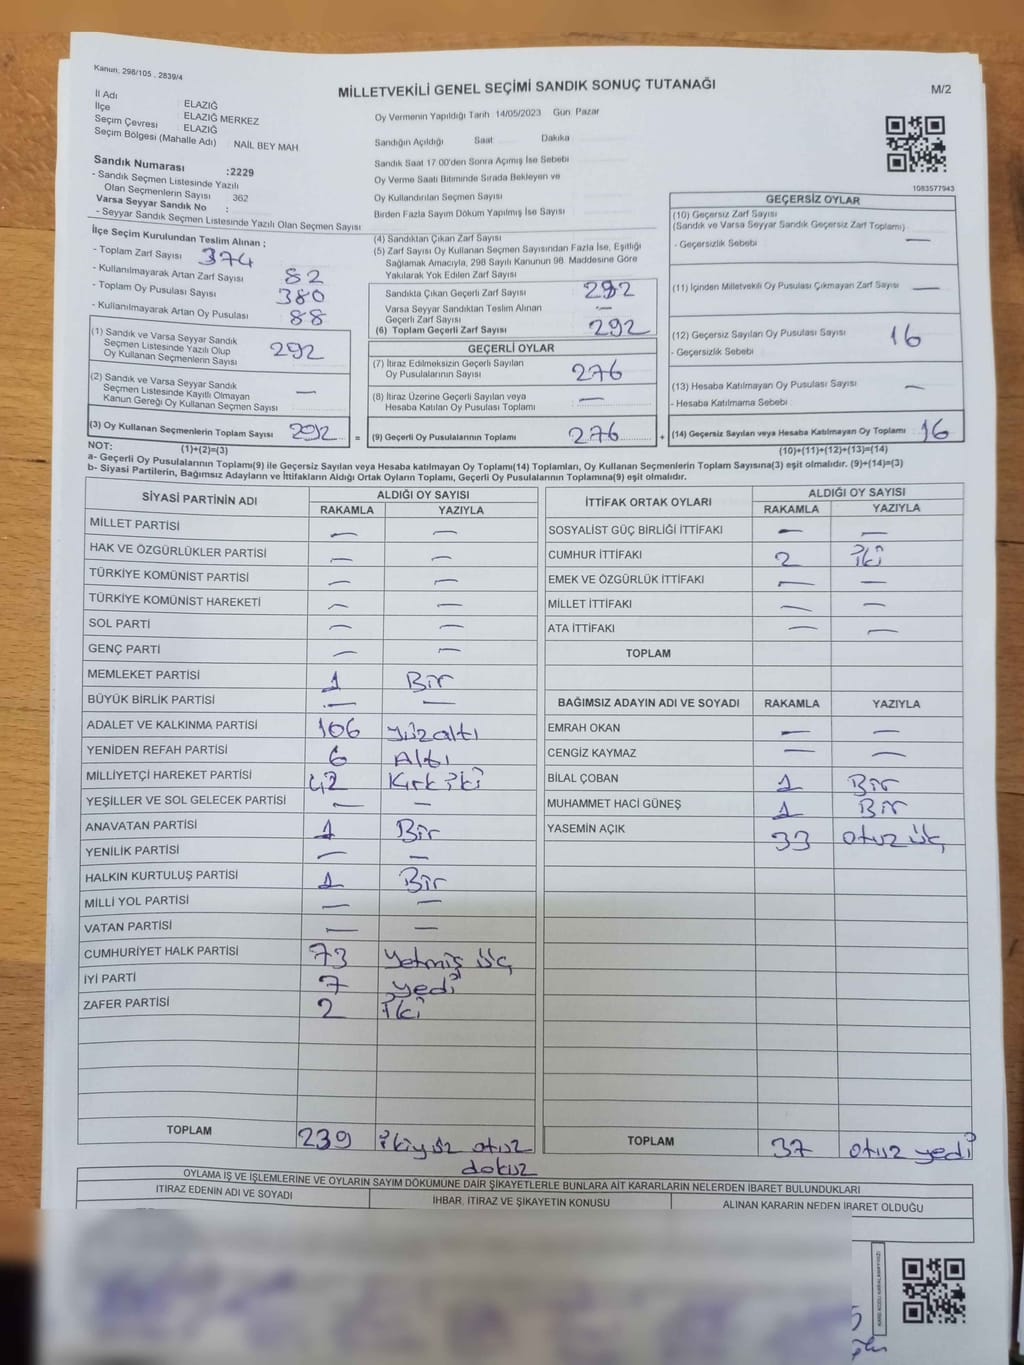 Kanun. 298/105 . 2839/4
MİLLETVEKİLİ GENEL SEÇİMİ SANDIK SONUÇ TUTANAĞI
M/2
İl Adı ELAZIĞ
İlçe ELAZIĞ MERKEZ
Seçim Çevresi ELAZIĞ
Seçim Bölgesi (Mahalle Adı) NAİL BEY MAH
Oy Vermenin Yapıldığı Tarih 14/05/2023 Gün Pazar
Sandığın Açıldığı Saat Dakika
Sandık Saat 17 00'den Sonra Açımış İse Sebebi
Oy Verme Saati Bitiminde Sırada Bekleyen ve
Oy Kullandırılan Seçmen Sayısı
Birden Fazla Sayım Döküm Yapılmış İse Sayısı
1083577943
Sandık Numarası :2229
- Sandık Seçmen Listesinde Yazılı
Olan Seçmenlerin Sayısı 362
Varsa Seyyar Sandık No :
- Seyyar Sandık Seçmen Listesinde Yazılı Olan Seçmen Sayısı
İlçe Seçim Kurulundan Teslim Alınan ;
- Toplam Zarf Sayısı 374
- Kullanılmayarak Artan Zarf Sayısı 82
- Toplam Oy Pusulası Sayısı 380
- Kullanılmayarak Artan Oy Pusulası 88
(1) Sandık ve Varsa Seyyar Sandık
Seçmen Listesinde Yazılı Olup
Oy Kullanan Seçmenlerin Sayısı 292
(2) Sandık ve Varsa Seyyar Sandık
Seçmen Listesinde Kayıtlı Olmayan
Kanun Gereği Oy Kullanan Seçmen Sayısı —
(3) Oy Kullanan Seçmenlerin Toplam Sayısı 292
(1)+(2)=(3)
(4) Sandıktan Çıkan Zarf Sayısı
(5) Zarf Sayısı Oy Kullanan Seçmen Sayısından Fazla İse, Eşitliği
Sağlamak Amacıyla, 298 Sayılı Kanunun 98. Maddesine Göre
Yakılarak Yok Edilen Zarf Sayısı
Sandıkta Çıkan Geçerli Zarf Sayısı 292
Varsa Seyyar Sandıktan Teslim Alınan
Geçerli Zarf Sayısı —
(6) Toplam Geçerli Zarf Sayısı 292
GEÇERLİ OYLAR
(7) İtiraz Edilmeksizin Geçerli Sayılan
Oy Pusulalarının Sayısı 276
(8) İtiraz Üzerine Geçerli Sayılan veya
Hesaba Katılan Oy Pusulası Toplamı —
= (9) Geçerli Oy Pusulalarının Toplamı 276 +
GEÇERSİZ OYLAR
(10) Geçersiz Zarf Sayısı
(Sandık ve Varsa Seyyar Sandık Geçersiz Zarf Toplamı)
- Geçersizlik Sebebi —
(11) İçinden Milletvekili Oy Pusulası Çıkmayan Zarf Sayısı —
(12) Geçersiz Sayılan Oy Pusulası Sayısı 16
- Geçersizlik Sebebi
(13) Hesaba Katılmayan Oy Pusulası Sayısı —
- Hesaba Katılmama Sebebi :
(14) Geçersiz Sayılan veya Hesaba Katılmayan Oy Toplamı 16
(10)+(11)+(12)+(13)=(14)
NOT:
a- Geçerli Oy Pusulalarının Toplamı(9) ile Geçersiz Sayılan veya Hesaba katılmayan Oy Toplamı(14) Toplamları, Oy Kullanan Seçmenlerin Toplam Sayısına(3) eşit olmalıdır. (9)+(14)=(3)
b- Siyasi Partilerin, Bağımsız Adayların ve İttifakların Aldığı Ortak Oyların Toplamı, Geçerli Oy Pusulalarının Toplamına(9) eşit olmalıdır.
SİYASİ PARTİNİN ADI ALDIĞI OY SAYISI
RAKAMLA YAZIYLA
MİLLET PARTİSİ — —
HAK VE ÖZGÜRLÜKLER PARTİSİ — —
TÜRKİYE KOMÜNİST PARTİSİ — —
TÜRKİYE KOMÜNİST HAREKETİ — —
SOL PARTİ — —
GENÇ PARTİ — —
MEMLEKET PARTİSİ 1 Bir
BÜYÜK BİRLİK PARTİSİ — —
ADALET VE KALKINMA PARTİSİ 106 yüzaltı
YENİDEN REFAH PARTİSİ 6 Altı
MİLLİYETÇİ HAREKET PARTİSİ 42 Kırk iki
YEŞİLLER VE SOL GELECEK PARTİSİ — —
ANAVATAN PARTİSİ 1 Bir
YENİLİK PARTİSİ — —
HALKIN KURTULUŞ PARTİSİ 1 Bir
MİLLİ YOL PARTİSİ — —
VATAN PARTİSİ — —
CUMHURİYET HALK PARTİSİ 73 yetmiş üç
İYİ PARTİ 7 yedi
ZAFER PARTİSİ 2 iki
TOPLAM 239 ikiyüz otuz
dokuz
İTTİFAK ORTAK OYLARI ALDIĞI OY SAYISI
RAKAMLA YAZIYLA
SOSYALİST GÜÇ BİRLİĞİ İTTİFAKI — —
CUMHUR İTTİFAKI 2 iki
EMEK VE ÖZGÜRLÜK İTTİFAKI — —
MİLLET İTTİFAKI — —
ATA İTTİFAKI — —
TOPLAM
BAĞIMSIZ ADAYIN ADI VE SOYADI RAKAMLA YAZIYLA
EMRAH OKAN — —
CENGİZ KAYMAZ — —
BİLAL ÇOBAN 1 Bir
MUHAMMET HACİ GÜNEŞ 1 Bir
YASEMİN AÇIK 33 otuz üç
TOPLAM 37 otuz yedi
OYLAMA İŞ VE İŞLEMLERİNE VE OYLARIN SAYIM DÖKÜMÜNE DAİR ŞİKAYETLERLE BUNLARA AİT KARARLARIN NELERDEN İBARET BULUNDUKLARI
İTİRAZ EDENİN ADI VE SOYADI İHBAR, İTİRAZ VE ŞİKAYETİN KONUSU ALINAN KARARIN NEDEN İBARET OLDUĞU